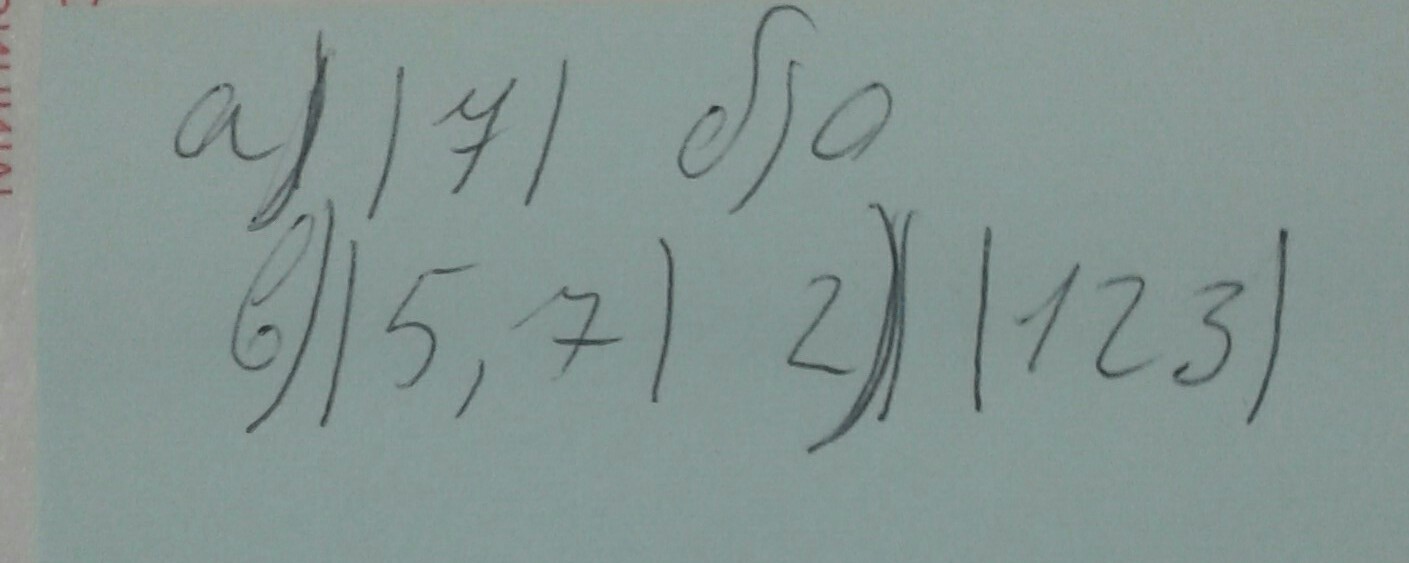 а) |7| б) 0
в) |5,7| г) |123|